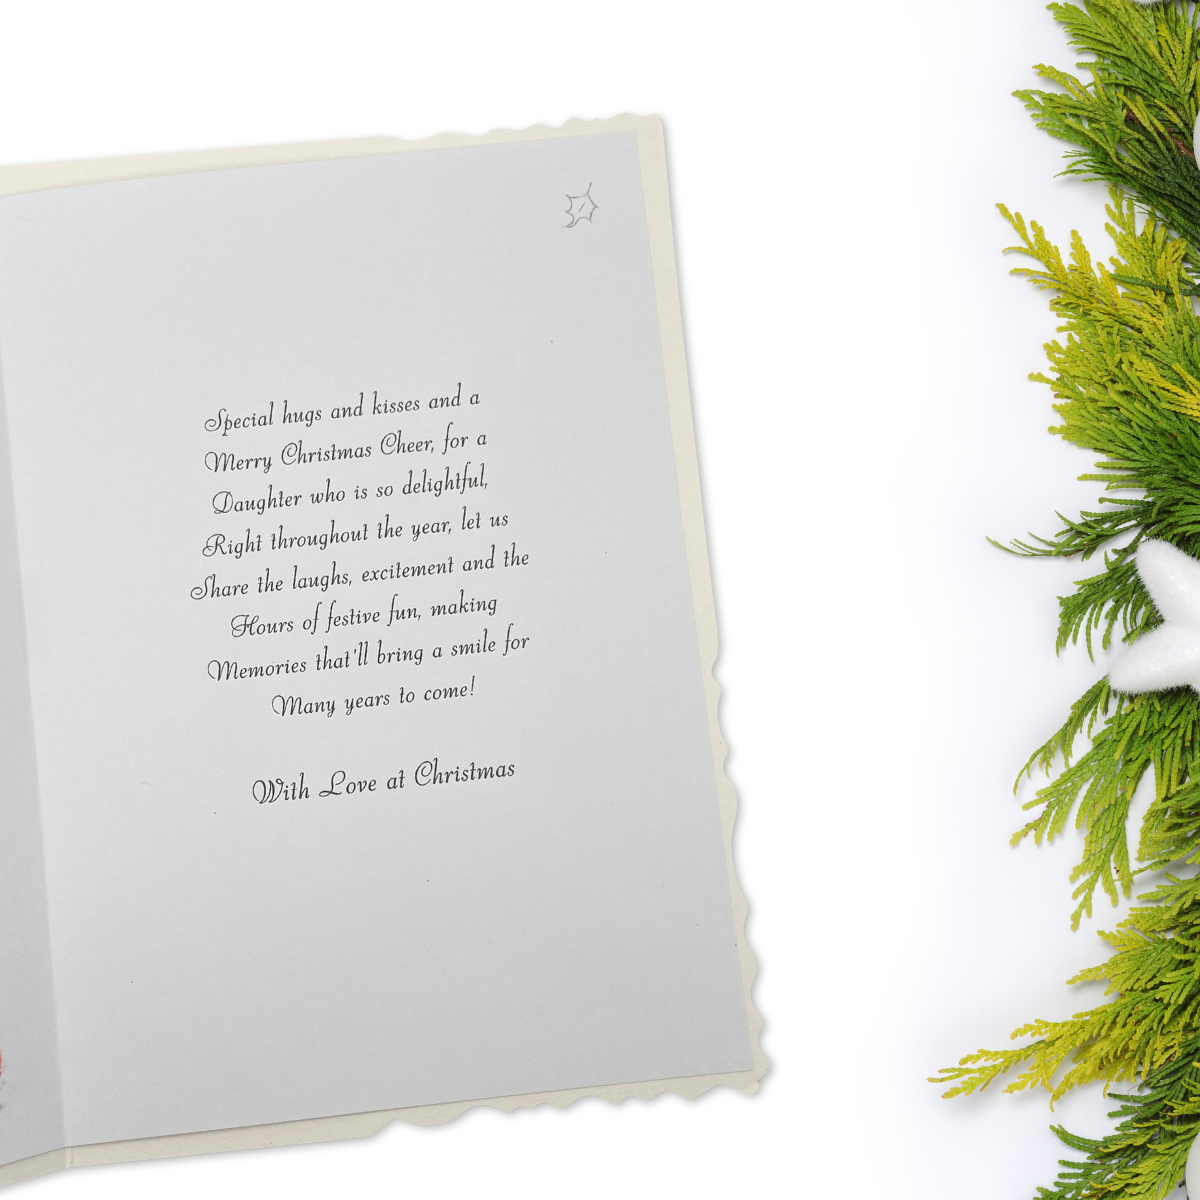 Special hugs and kisses and a
Merry Christmas Cheer, for a
Daughter who is so delightful,
Right throughout the year, let us
Share the laughs, excitement and the
Hours of festive fun, making
Memories that'll bring a smile for
Many years to come!
With Love at Christmas